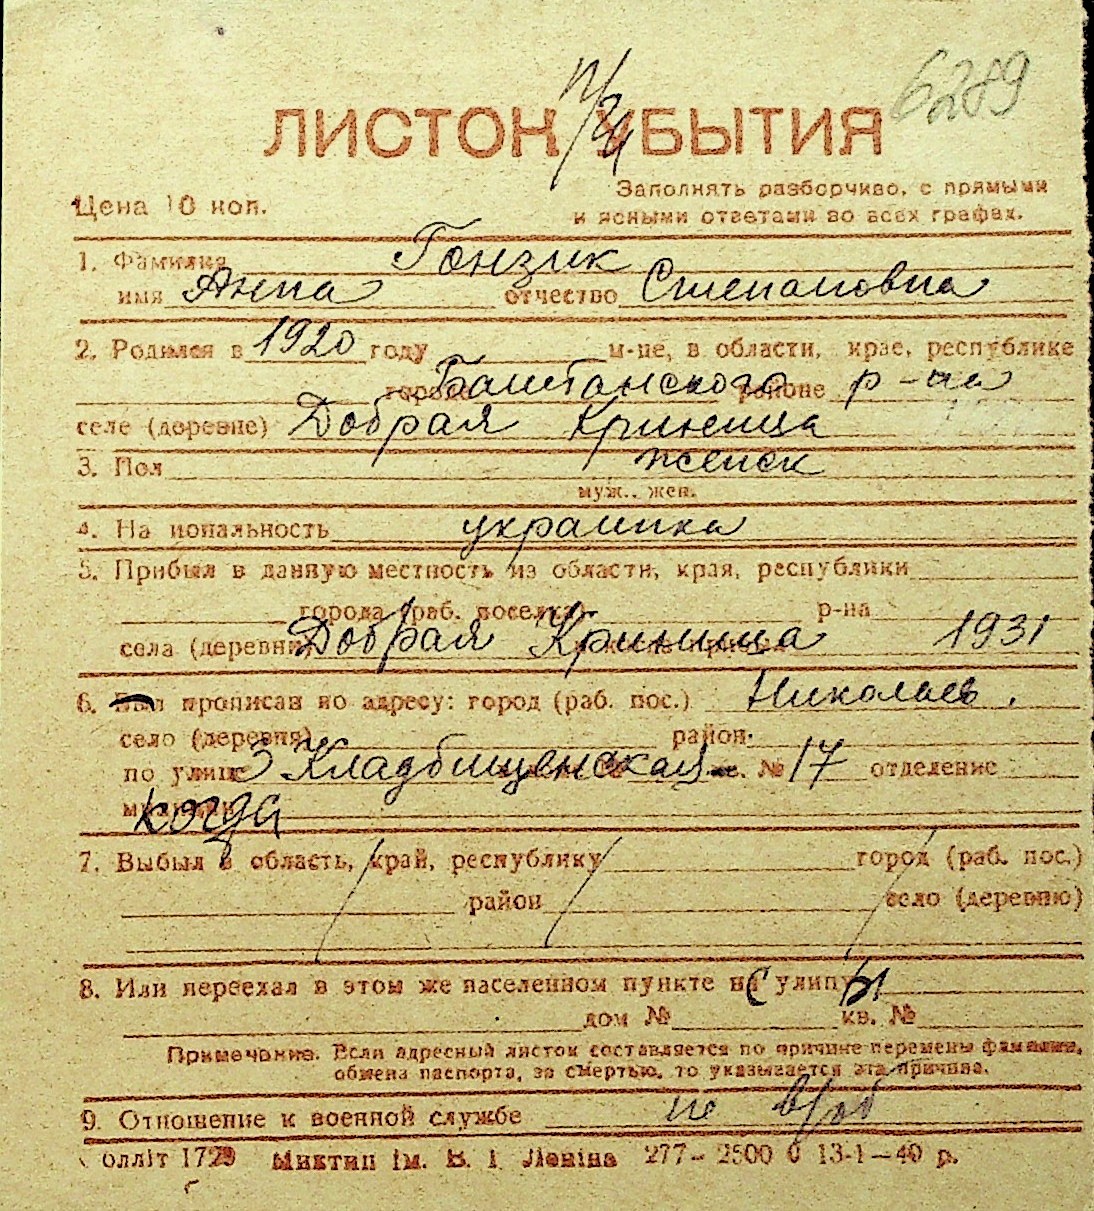 6289
ЛИСТОК УБЫТИЯ
Цена 10 коп.
Заполнять разборчиво, с прямыми
и ясными ответами во всех графах.
1. Фамилия Гонзик
имя Анна отчество Степановна
2. Родился в 1920 году м-це, в области, крае, республике
городе Баштанского районе р-на
селе (деревне) Добрая Криница
3. Пол женск
муж., жен.
4. Национальность украинка
5. Прибыл в данную местность из области, края, республики
города (раб. поселка) р-на
села (деревни) Добрая Криница 1931
6. Был прописан по адресу: город (раб. пос.) Николаев.
село (деревня) район
по улице 3 Кладбищенская кв. № 17 отделение
милиции когда
7. Выбыл в область, край, республику город (раб. пос.)
район село (деревню)
8. Или переехал в этом же населенном пункте на с улицу ы
дом № кв. №
Примечание. Если адресный листок составляется по причине перемены фамилии,
обмена паспорта, за смертью, то указывается эта причина.
9. Отношение к военной службе не в/об
оллiт 1729 Миктип iм. В. I. Ленiна 277-2500 0 13-1-40 р.